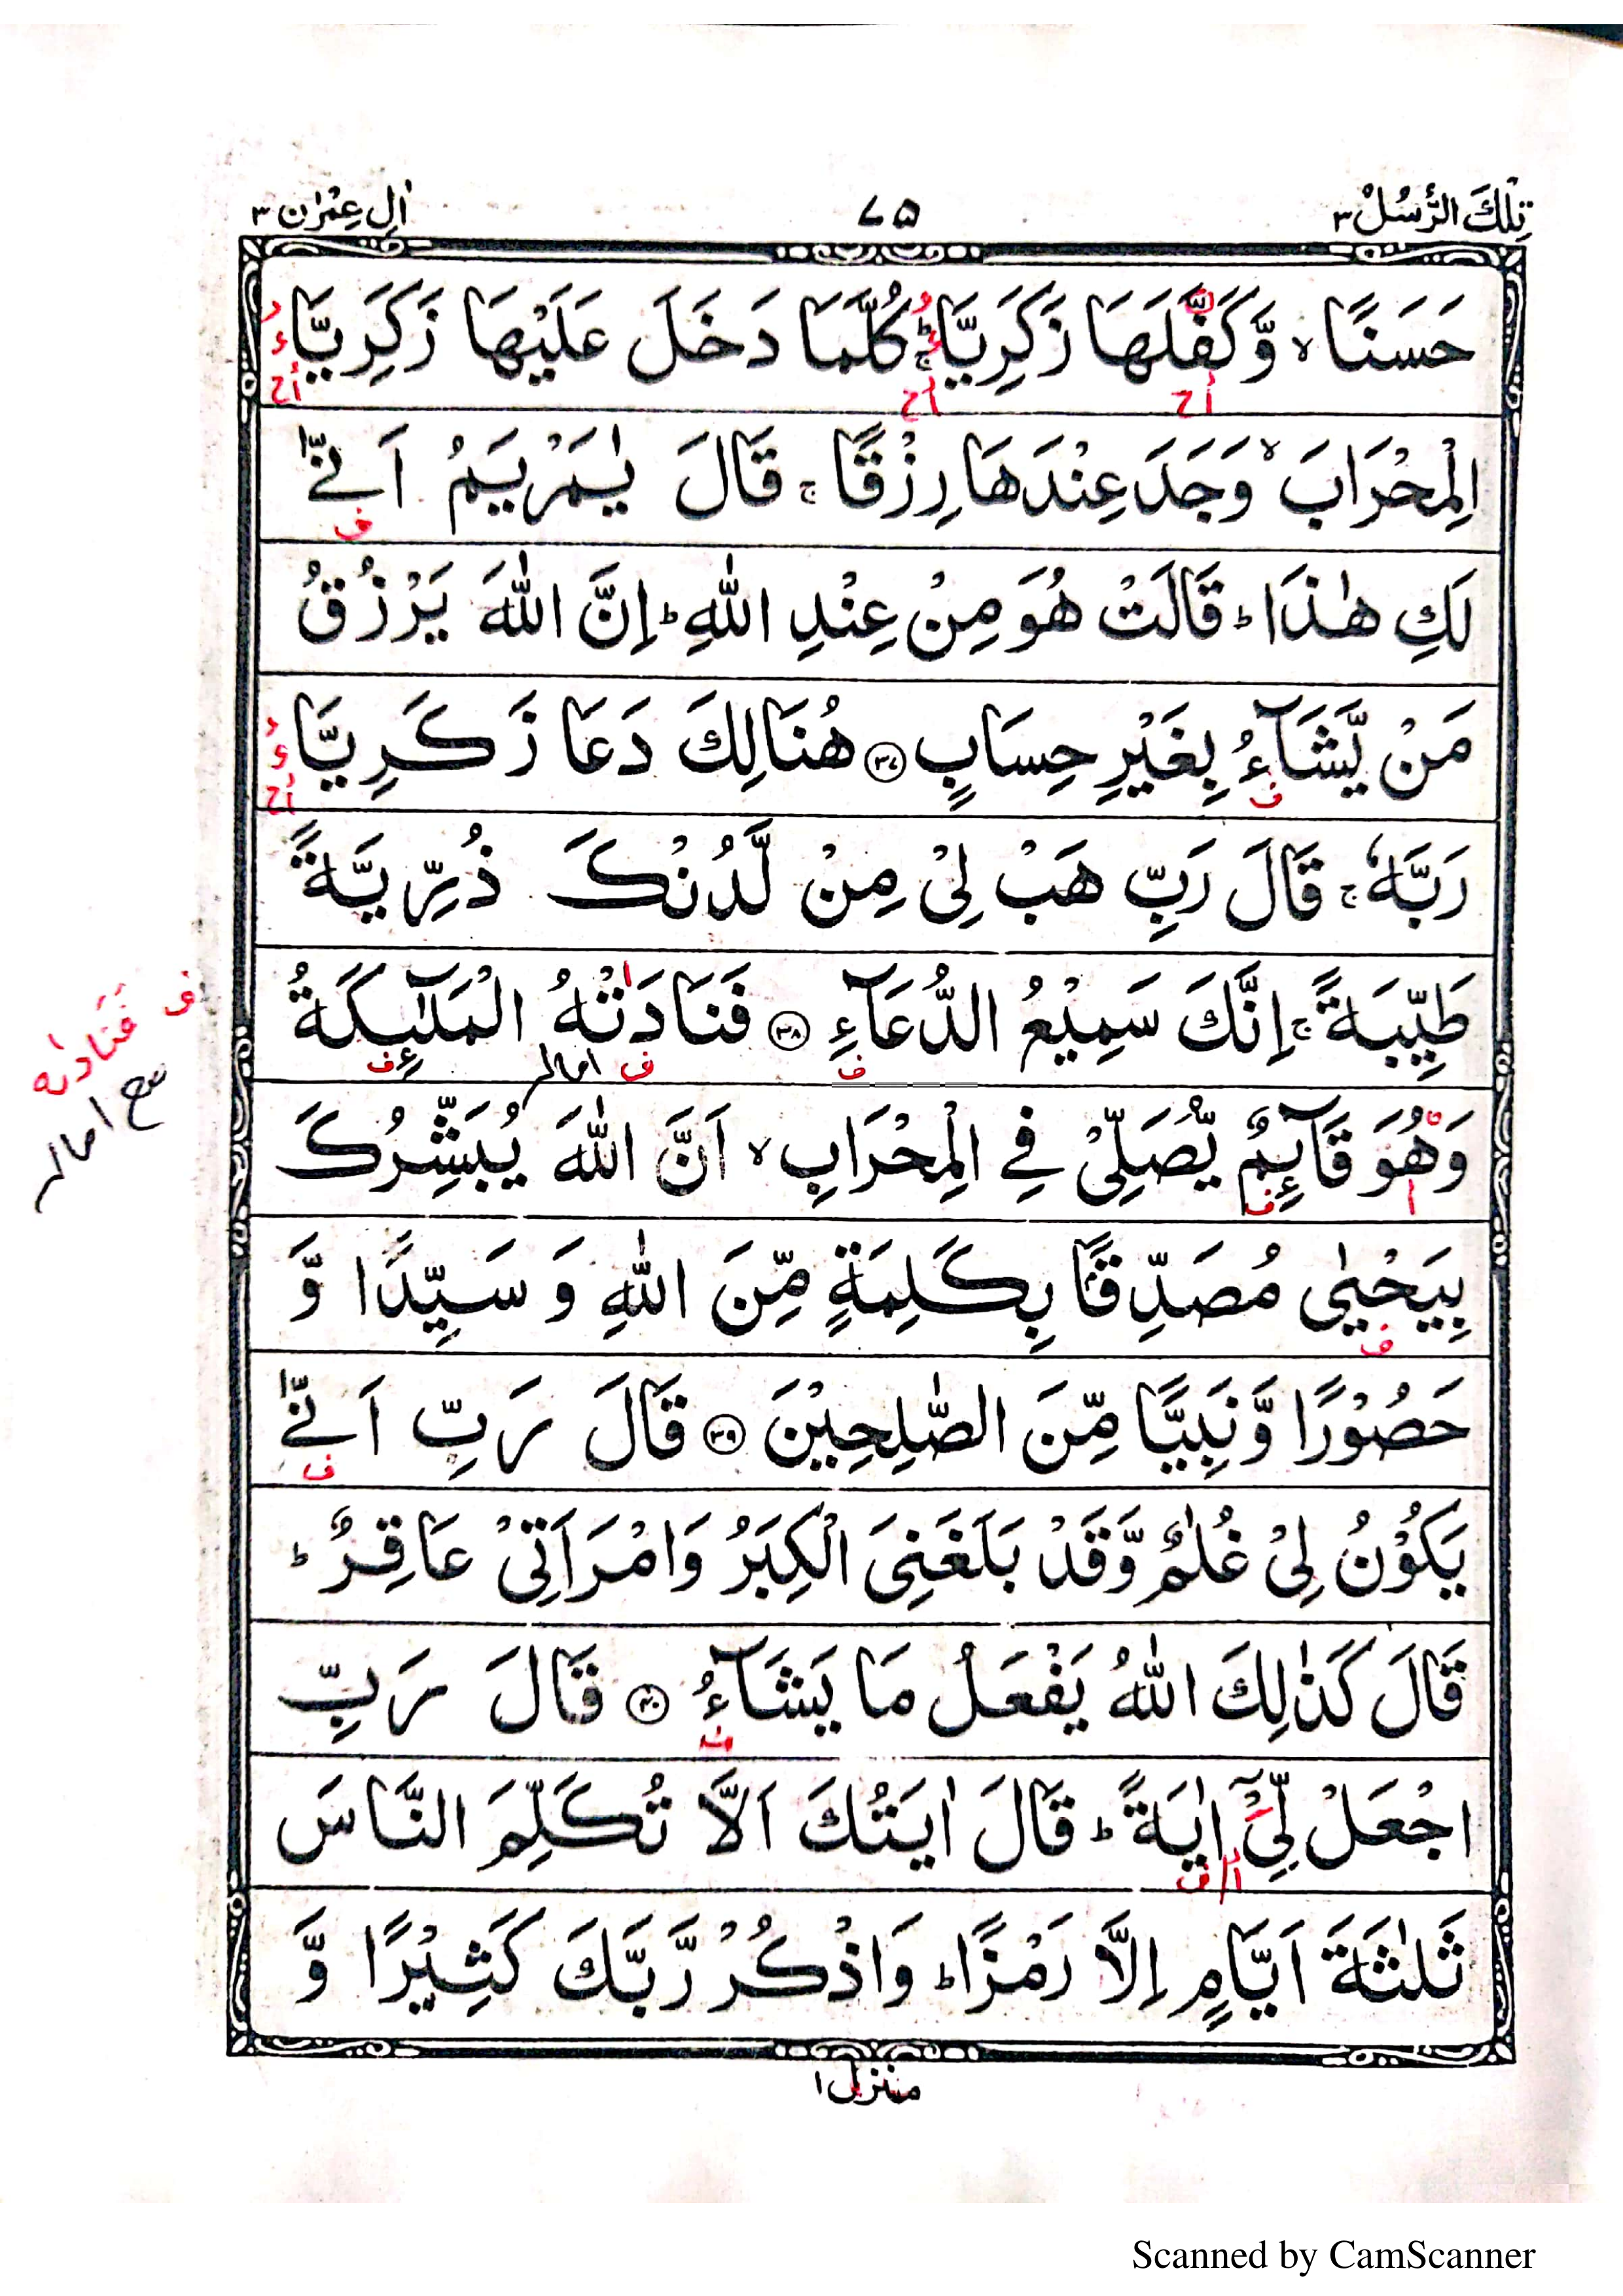 تِلْكَ الرُّسُلُ ٣
٧٥
اٰلِ عِمْرٰن ٣
حَسَنًا ۙ وَّكَفَّلَهَا زَكَرِيَّا ۚؕ كُلَّمَا دَخَلَ عَلَيْهَا زَكَرِيَّا
الْمِحْرَابَ ۙ وَجَدَ عِنْدَهَا رِزْقًا ۚ قَالَ يٰمَرْيَمُ اَنّٰى
لَكِ هٰذَا ؕ قَالَتْ هُوَ مِنْ عِنْدِ اللّٰهِ ؕ اِنَّ اللّٰهَ يَرْزُقُ
مَنْ يَّشَآءُ بِغَيْرِ حِسَابٍ ﴿٣٧﴾ هُنَالِكَ دَعَا زَكَرِيَّا
رَبَّهٗ ۚ قَالَ رَبِّ هَبْ لِىْ مِنْ لَّدُنْكَ ذُرِّيَّةً
طَيِّبَةً ۚ اِنَّكَ سَمِيْعُ الدُّعَآءِ ﴿٣٨﴾ فَنَادَتْهُ الْمَلٰٓئِكَةُ
ف فَنَادٰىه
امالہ
وَهُوَ قَآئِمٌ يُّصَلِّىْ فِى الْمِحْرَابِ ۙ اَنَّ اللّٰهَ يُبَشِّرُكَ
مع امالہ
بِيَحْيٰى مُصَدِّقًا بِكَلِمَةٍ مِّنَ اللّٰهِ وَ سَيِّدًا وَّ
حَصُوْرًا وَّنَبِيًّا مِّنَ الصّٰلِحِيْنَ ﴿٣٩﴾ قَالَ رَبِّ اَنّٰى
يَكُوْنُ لِىْ غُلٰمٌ وَّقَدْ بَلَغَنِىَ الْكِبَرُ وَامْرَاَتِىْ عَاقِرٌ ؕ
قَالَ كَذٰلِكَ اللّٰهُ يَفْعَلُ مَا يَشَآءُ ﴿٤٠﴾ قَالَ رَبِّ
اجْعَلْ لِّىْۤ اٰيَةً ؕ قَالَ اٰيَتُكَ اَلَّا تُكَلِّمَ النَّاسَ
ثَلٰثَةَ اَيَّامٍ اِلَّا رَمْزًا ؕ وَاذْكُرْ رَّبَّكَ كَثِيْرًا وَّ
منزل ١
Scanned by CamScanner